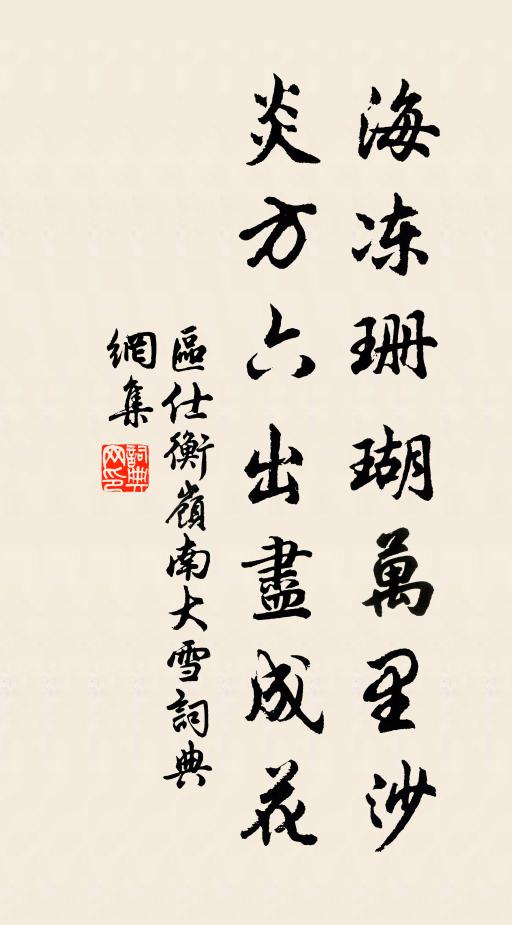 海冻珊瑚萬里沙
炎方六出盡成花
區仕衡嶺南大雪詞典
網集
詞典
网印